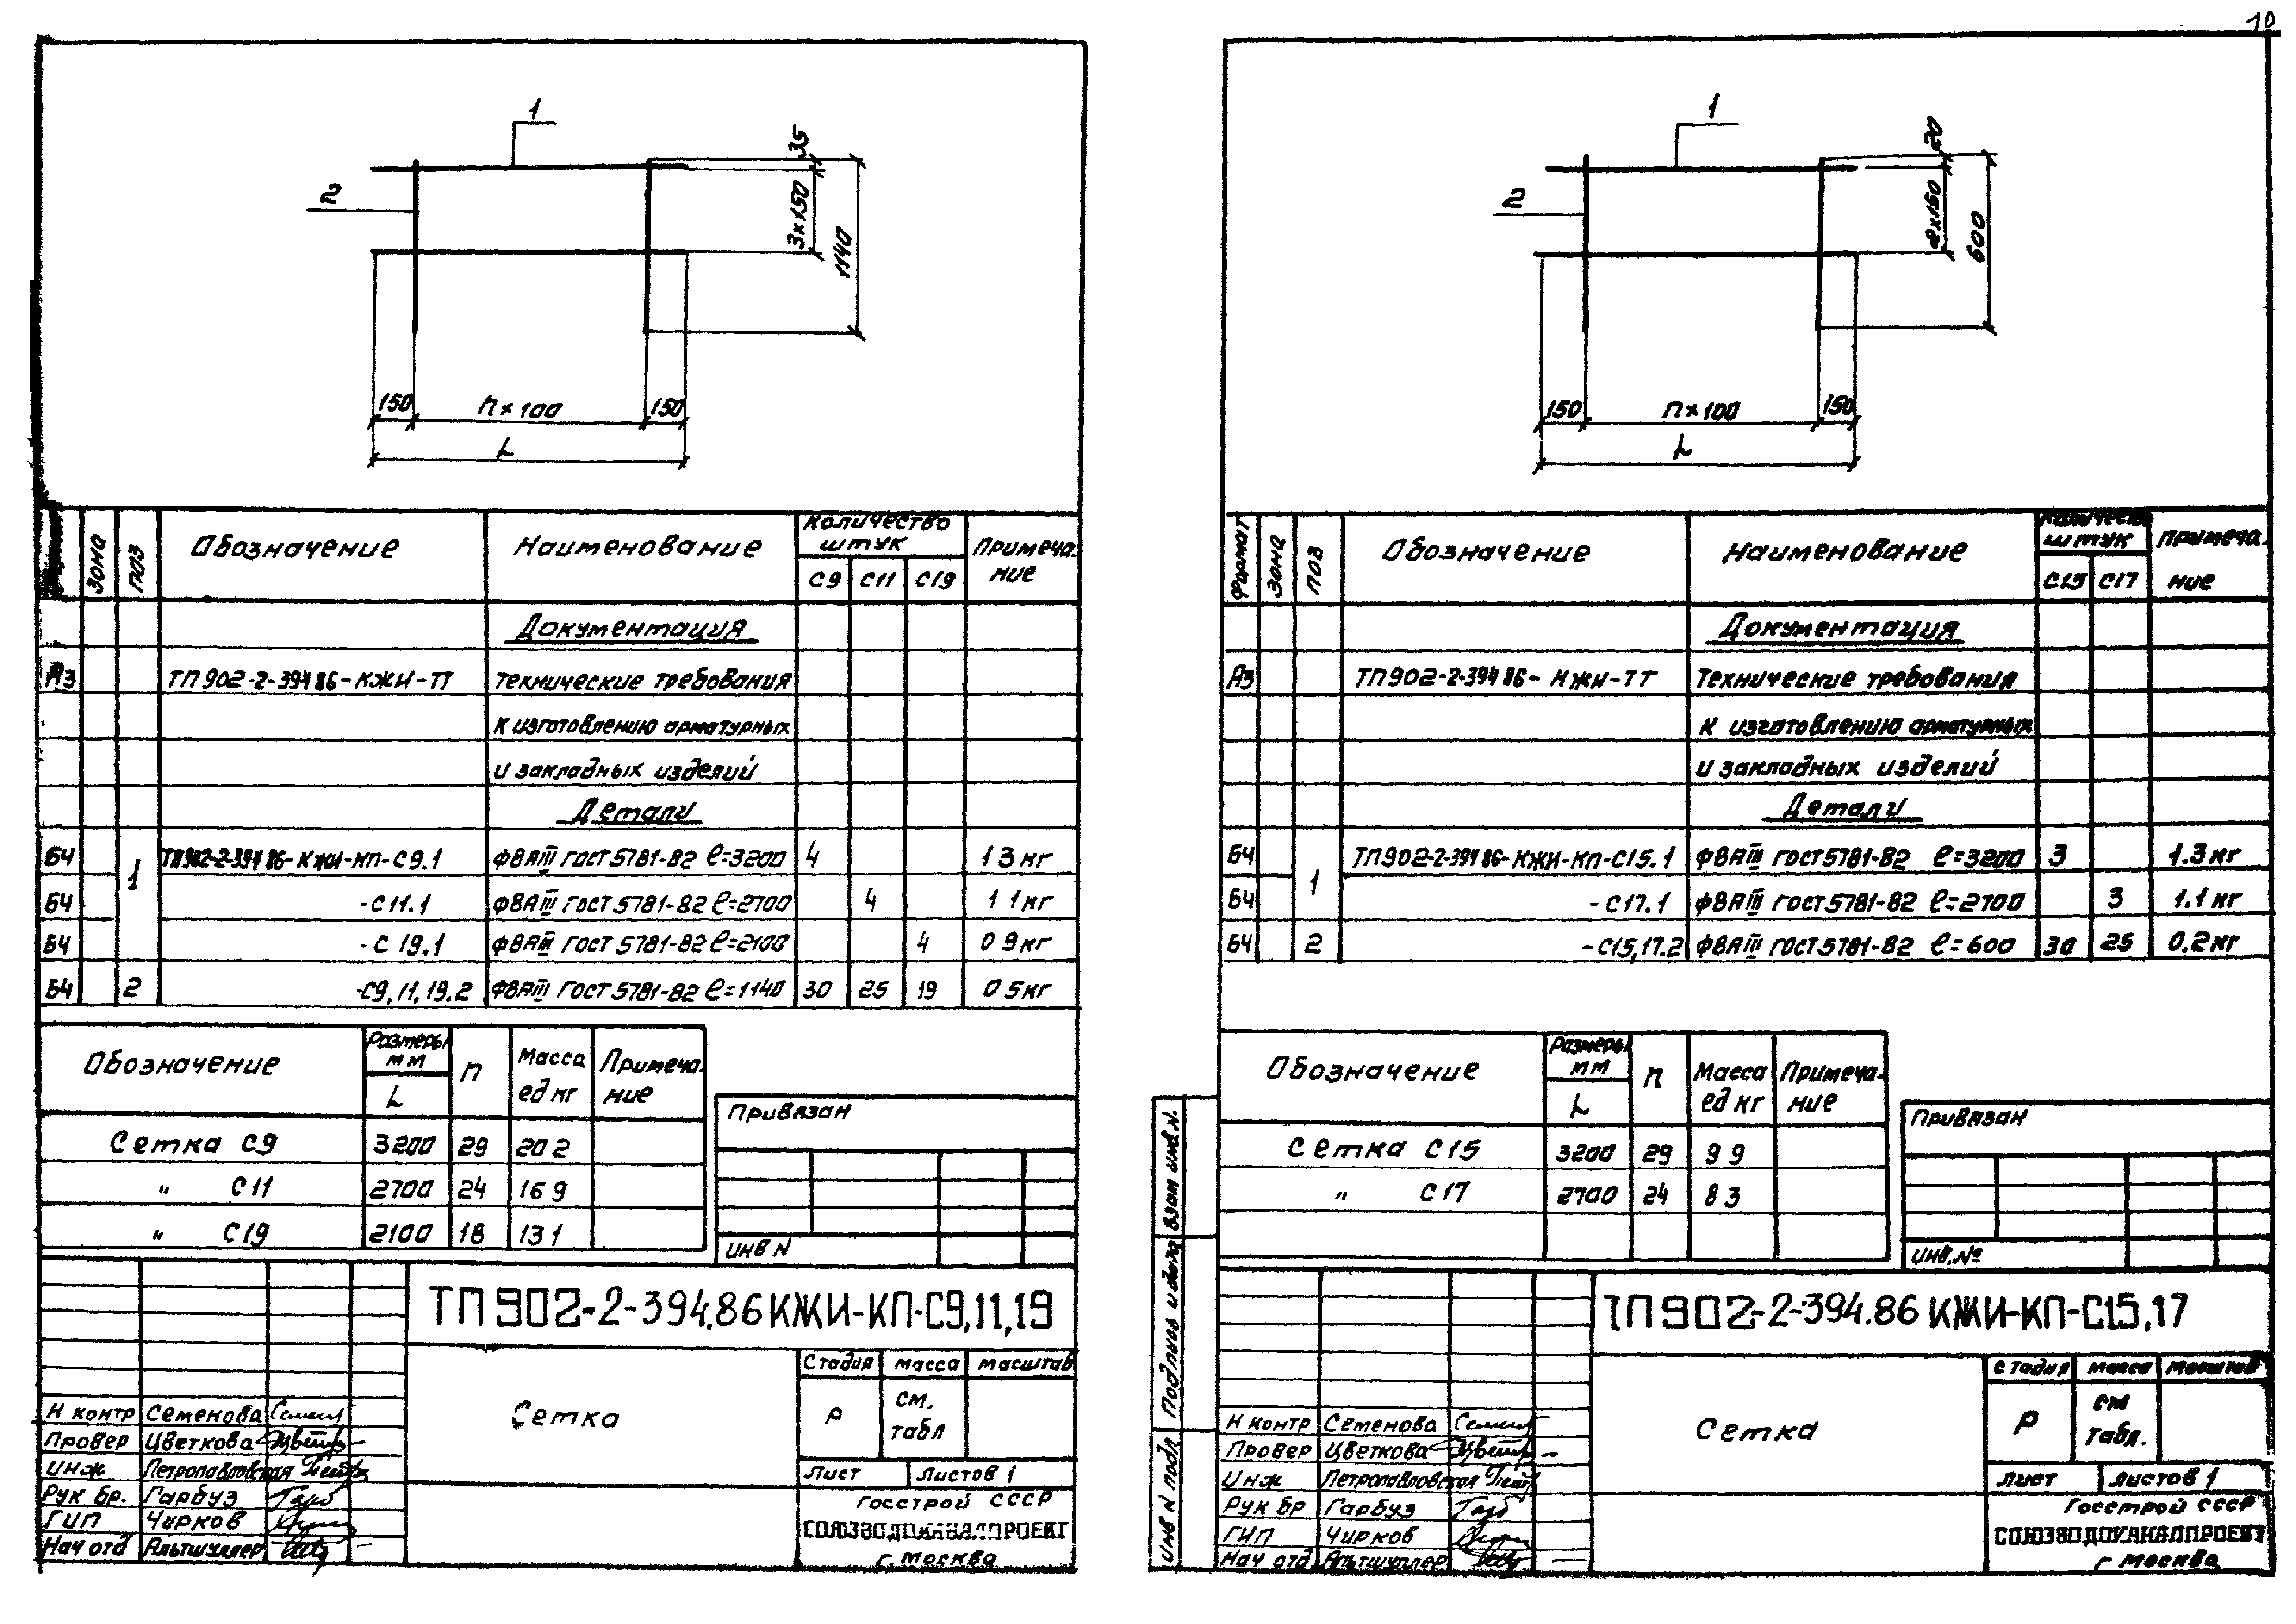 10
1
2
35
3×150
1140
150 n×100 150
L
Зона Поз Обозначение Наименование Количество штук Примеча-
С9 С11 С19 ние
Документация
А3 ТП902-2-394 86-КЖИ-ТТ Технические требования
к изготовлению арматурных
и закладных изделий
Детали
БЧ 1 ТП902-2-394 86-КЖИ-КП-С9.1 Ф8АIII ГОСТ 5781-82 ℓ=3200 4 1 3 кг
БЧ -С11.1 Ф8АIII ГОСТ 5781-82 ℓ=2700 4 1 1 кг
БЧ -С 19.1 Ф8АIII ГОСТ 5781-82 ℓ=2100 4 0 9 кг
БЧ 2 -С9, 11, 19.2 Ф8АIII ГОСТ 5781-82 ℓ=1140 30 25 19 0 5 кг
Обозначение Размеры мм n Масса ед кг Примеча-ние
L
Сетка С9 3200 29 20 2
" С11 2700 24 16 9
" С19 2100 18 13 1
Привязан
Инв N
ТП902-2-394.86 КЖИ-КП-С9,11,19
Сетка
Стадия Масса Масштаб
Р См. табл
Лист Листов 1
Госстрой СССР
СОЮЗВОДОКАНАЛПРОЕКТ
г. Москва
Н контр Семенова
Провер Цветкова
Инж Петропавловская
Рук бр. Гарбуз
ГИП Чирков
Нач отд Альтшуллер
1
2
20
2×150
600
150 n×100 150
L
Формат Зона Поз Обозначение Наименование Количество штук Примеча-
С15 С17 ние
Документация
А3 ТП902-2-394 86-КЖИ-ТТ Технические требования
к изготовлению арматурных
и закладных изделий
Детали
БЧ 1 ТП902-2-394 86-КЖИ-КП-С15.1 Ф8АIII ГОСТ 5781-82 ℓ=3200 3 1.3 кг
БЧ -С17.1 Ф8АIII ГОСТ 5781-82 ℓ=2700 3 1.1 кг
БЧ 2 -С15,17.2 Ф8АIII ГОСТ 5781-82 ℓ=600 30 25 0.2 кг
Обозначение Размеры мм n Масса ед кг Примеча-ние
L
Сетка С15 3200 29 9 9
" С17 2700 24 8 3
Привязан
Инв.№
Взам инв.N.
Подпись и дата
Инв N подл
ТП902-2-394.86 КЖИ-КП-С15,17
Сетка
Стадия Масса Масштаб
Р См табл.
Лист Листов 1
Госстрой СССР
СОЮЗВОДОКАНАЛПРОЕКТ
г Москва
Н контр Семенова
Провер Цветкова
Инж Петропавловская
Рук бр Гарбуз
ГИП Чирков
Нач отд Альтшуллер